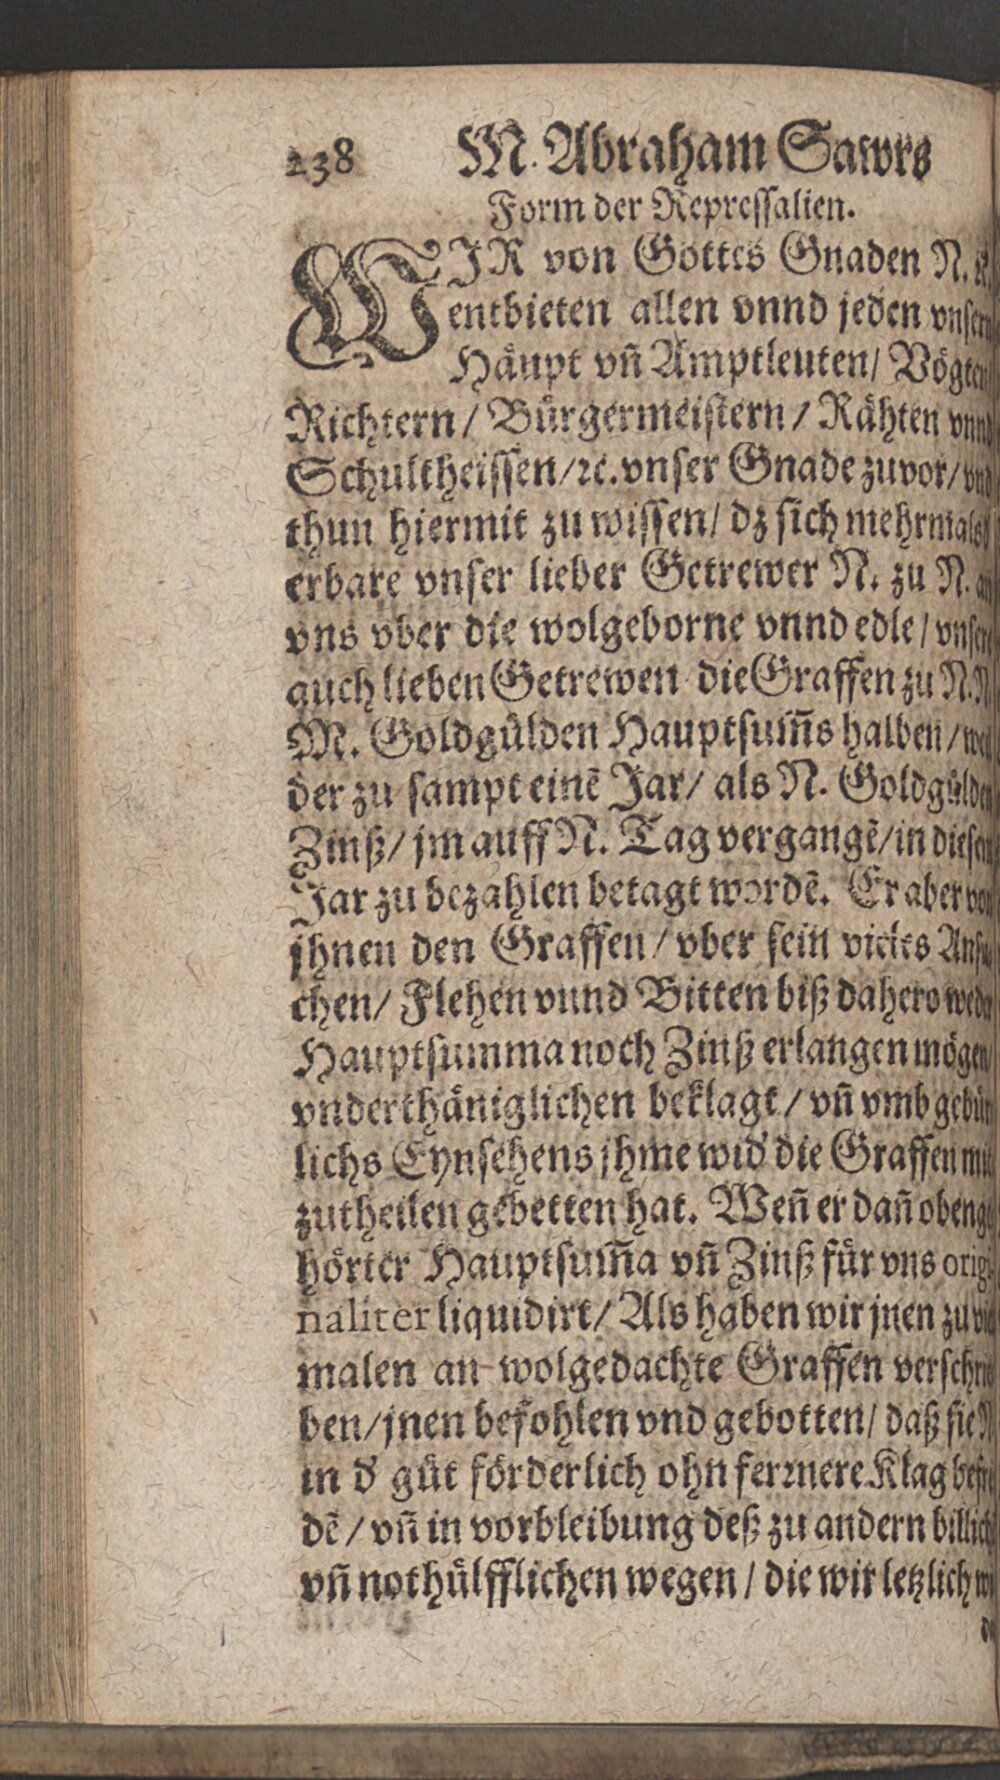 238 M. Abraham Sawrs
Form der Repressalien.
WIR von Gottes Gnaden N. ꝛc.
entbieten allen vnnd jeden vnsern
Häupt vn̄ Amptleuten/ Vögten
Richtern/ Bürgermeistern/ Rähten vnnd
Schultheissen/ꝛc. vnser Gnade zuvor/ vnd
thun hiermit zu wissen/ dz sich mehrmals
erbare vnser lieber Getrewer N. zu N. an
vns vber die wolgeborne vnnd edle/ vnsere
auch lieben Getrewen die Graffen zu N. N.
M. Goldgülden Hauptsum̄s halben/
der zu sampt einē Jar/ als N. Goldgülden
Zinß/ jm auff N. Tag vergangē/in diesem
Jar zu bezahlen betagt wordē. Er aber von
jhnen den Graffen/ vber sein vieles Ansu
chen/ Flehen vnnd Bitten biß dahero weder
Hauptsumma noch Zinß erlangen mögen
vnderthäniglichen beklagt/ vn̄ vmb gebür
lichs Eynsehens jhme wid' die Graffen mit
zutheilen gebetten hat. Wen̄ er dan̄ obenge
hörter Hauptsum̄a vn̄ Zinß für vns origi
naliter liquidirt/ Als haben wir jnen zu
malen an wolgedachte Graffen verschrie
ben/jnen befohlen vnd gebotten/ daß sie N
in d' güt förderlich ohn fernnere Klag befrie
dē/ vn̄ in vorbleibung deß zu andern billich
vn̄ nothülfflichen wegen/ die wir letzlich